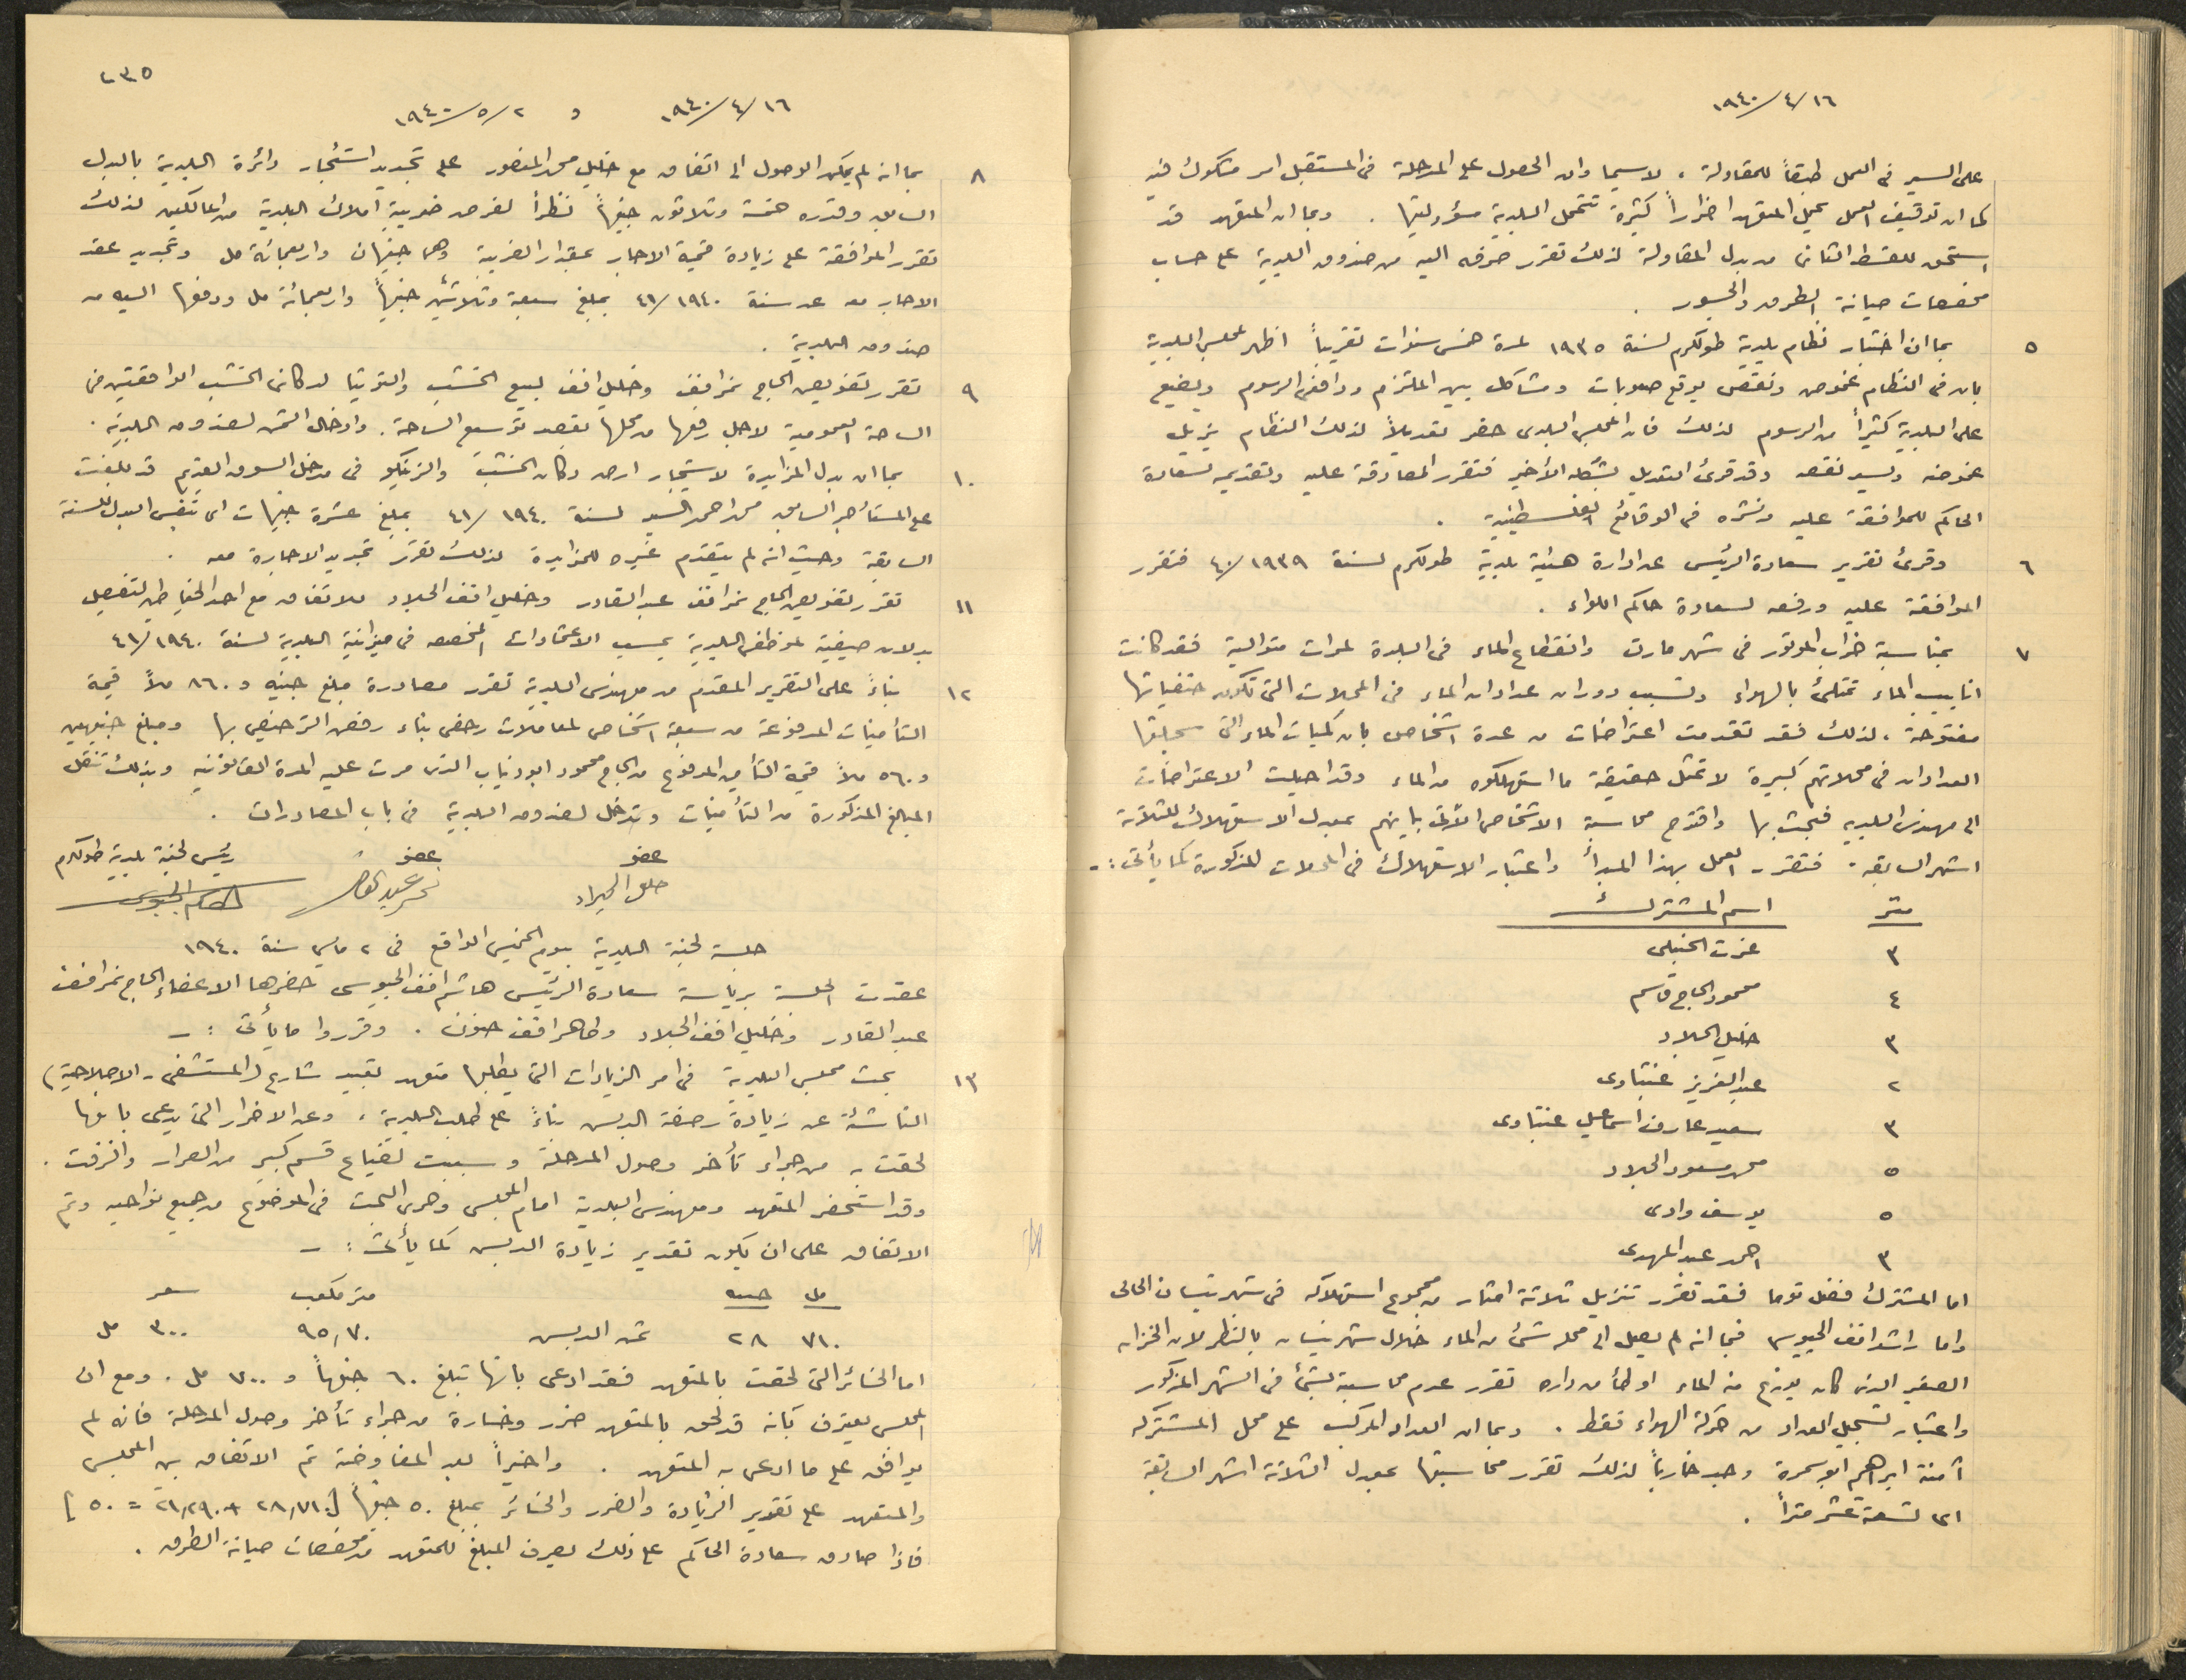 ١٦/٤/١٩٤٠
على السير فى العمل طبقاً للمقاولة ، لاسيما وان الحصول على المدحلة فى المستقبل امر مشكوك فيه
كما ان توقيف العمل يحمل المتعهد اضراراً كثيرة تتحمل البلدية مسؤوليتها . وبما ان المتعهد قد
استحق للقسط الثانى من بدل المقاولة لذلك تقرر صرفه اليه من صندوق البلدية على حساب
مخصصات صيانة الطرق والجسور .
٥ بما ان اختبار نظام بلدية طولكرم لسنة ١٩٣٥ لمدة خمس سنوات تقريباً اظهر لمجلس البلدية
بان فى النظام غموض ونقص يوقع صعوبات ومشاكل بين الملتزم ودافعى الرسوم ويضيع
على البلدية كثيراً من الرسوم لذلك فان المجلس البلدى حضر تعديلاً لذلك النظام يزيل
غموضه ويسد نقصه وقد قرئ التعديل بشكله الأخير فتقرر المصادقة عليه وتقديمه لسعادة
الحاكم للموافقة عليه ونشره فى الوقائع الفلسطينية .
٦ وقرئ تقرير سعادة الرئيس عن ادارة هيئة بلدية طولكرم لسنة ١٩٣٩/٤٠ فتقرر
الموافقة عليه ورفعه لسعادة حاكم اللواء .
٧ بمناسبة خراب الموتور فى شهر مارت وانقطاع الماء فى البلدة لمرات متوالية فقد كانت
انابيب الماء تمتلئ بالهواء وتسبب دوران عدادات الماء فى المحلات التى تكون حنفياتها
مفتوحة ، لذلك فقد تقدمت اعتراضات من عدة اشخاص بان كميات الماء التى سجلتها
العدادات فى محلاتهم كبيرة لا تمثل حقيقة ما استهلكوه من الماء وقد احيلت الاعتراضات
الى مهندس البلدية فبحث بها واقترح محاسبة الاشخاص الآتى بيانهم بمعدل الاستهلاك للثلاثة
اشهر السابقة . فتقرر العمل بهذا المبدأ واعتبار الاستهلاك فى المحلات المذكورة كما يأتى :-
متر اسم المشترك
٣ عزت الحنبلى
٤ محمود الحاج قاسم
٣ خليل الجلاد
٢ عبد العزيز عنبتاوى
٣ سعيد عارف اسماعيل عنبتاوى
٥ محمد مسعود الجلاد
٥ يوسف وادى
٣ احمد عبد المهدى
اما المشترك فضل توما فقد تقرر تنزيل ثلاثة امتار من مجموع استهلاكه فى شهر نيسان الحالى
واما راشد افندى الجيوسى فبما انه لم يصل الى محله شئ من الماء خلال شهر نيسان بالنظر لان الخزان
الصغير الذى كان يوزع منه الماء اوطأ من داره تقرر عدم محاسبته بشئ فى الشهر المذكور
واعتبار تسجيل العداد من حركة الهواء فقط . وبما ان العداد المركب على محل المشتركة
آمنة ابراهيم ابو سمرة وجد خارباً لذلك تقرر محاسبتها بمعدل الثلاثة اشهر السابقة
اى تسعة عشر متراً .
٢٣٥
١٦/٤/١٩٤٠ و ٢/٥/١٩٤٠
٨ بما انه لم يمكن الوصول الى اتفاق مع خليل محمد المنصور على تجديد استئجار دائرة البلدية بالبدل
السابق وقدره خمسة وثلاثون جنيهاً نظراً لفرض ضريبة املاك البلدية من المالكين لذلك
تقرر الموافقة على زيادة قيمة الايجار بمقدار الضريبة وهى جنيهان واربعمائة مل وتجديد عقد
الايجار معه عن سنة ١٩٤٠/٤١ بمبلغ سبعة وثلاثين جنيهاً واربعمائة مل ودفعها اليه من
صندوق البلدية .
٩ تقرر تفويض الحاج نمر افندى وخليل افندى لبيع الخشب والتوتيا لدكانى الخشب الواقعتين فى
الساحة العمومية لاجل رفعها من محلها بقصد توسيع الساحة . وادخال الثمن لصندوق البلدية .
١٠ بما ان بدل المزايدة لاستيجار ارض دكان الخشب والزينكو فى مدخل السوق القديم قد بلغت
على المستأجر السابق محمد احمد السيد لسنة ١٩٤٠/٤١ بمبلغ عشرة جنيهات اى بنفس البدل للسنة
السابقة وحيث انه لم يتقدم غيره للمزايدة لذلك تقرر تجديد الاجارة معه .
١١ تقرر تفويض الحاج نمر افندى عبد القادر وخليل افندى الجلاد للاتفاق مع احد الخياطين لتفصيل
بدلات صيفية لموظفى البلدية بحسب الاعتمادات المخصصة فى ميزانية البلدية لسنة ١٩٤٠/٤١
١٢ بناءً على التقرير المقدم من مهندس البلدية تقرر مصادرة مبلغ جنيه و ٨٦٠ ملاً قيمة
التأمينات المدفوعة من سبعة اشخاص لمعاملات رخص بناء رفض الترخيص بها ومبلغ جنيهين
و ٥٦٠ ملاً قيمة التأمين المدفوع من الحاج محمود ابو ذياب الذى مرت عليه المدة القانونية وبذلك تنقل
المبالغ المذكورة من التأمينات وتدخل لصندوق البلدية فى باب المصادرات .
عضو عضو رئيس لجنة بلدية طولكرم
خليل الجلاد نمر عبد القادر هاشم الجيوسى
جلسة لجنة البلدية يوم الخميس الواقع فى ٢ مايس سنة ١٩٤٠
عقدت الجلسة برياسة سعادة الرئيس هاشم افندى الجيوسى حضرها الاعضاء الحاج نمر افندى
عبد القادر وخليل افندى الجلاد وطاهر افندى حنون . وقرروا ما يأتى :-
١٣ بحث مجلس البلدية فى امر الزيادات التى يطلبها متعهد تعبيد شارع (المستشفى - الاصلاحية)
الناشئة عن زيادة رصفة الدبس بناءً على طلب البلدية ، وعن الاضرار التى يدعى بانها
لحقت به من جراء تأخر وصول المدحلة وسببت لضياع قسم كبير من الصرار والزفت .
وقد استحضر المتعهد ومهندس البلدية امام المجلس وجرى البحث فى الموضوع من جميع نواحيه وتم
الاتفاق على ان يكون تقدير زيادة الدبس كما يأتى :-
مل جنيه متر مكعب سعر
٧١٠ ٢٨ ثمن الدبس ٩٥,٧٠ ٣٠٠ مل
اما الخسائر التى لحقت بالمتعهد فقد ادعى بانها تبلغ ٦٠ جنيهاً و ٧٠٠ مل . ومع ان
المجلس يعترف بأنه قد لحق بالمتعهد ضرر وخسارة من جراء تأخر وصول المدحلة فانه لم
يوافق على ما ادعى به المتعهد . واخيراً بعد المفاوضة تم الاتفاق بين المجلس
والمتعهد على تقدير الزيادة والضرر والخسائر بمبلغ ٥٠ جنيهاً [ ٢٨,٧١٠ + ٢١,٢٩٠ = ٥٠ ]
فاذا صادق سعادة الحاكم على ذلك يصرف المبلغ للمتعهد من مخصصات صيانة الطرق .